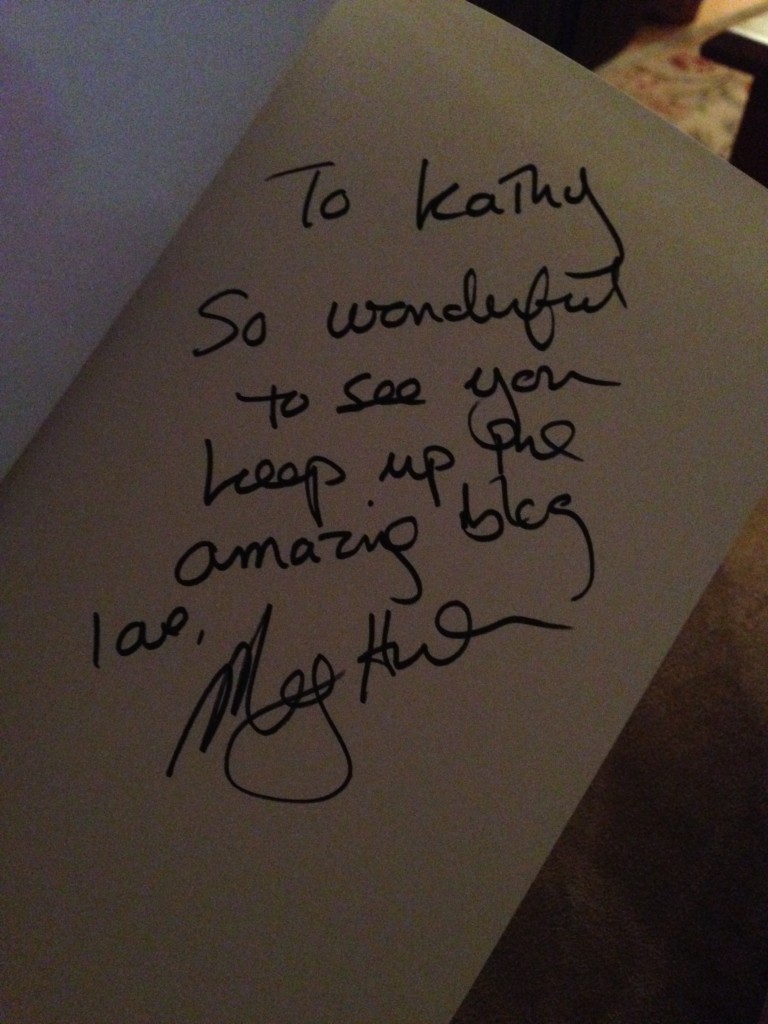 To Kathy
So wonderful
to see you
keep up the
amazing blog
love,
Meg